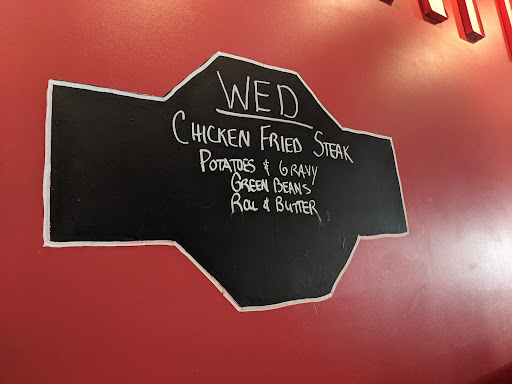 WED
CHICKEN FRIED STEAK
POTATOES & GRAVY
GREEN BEANS
ROLL & BUTTER